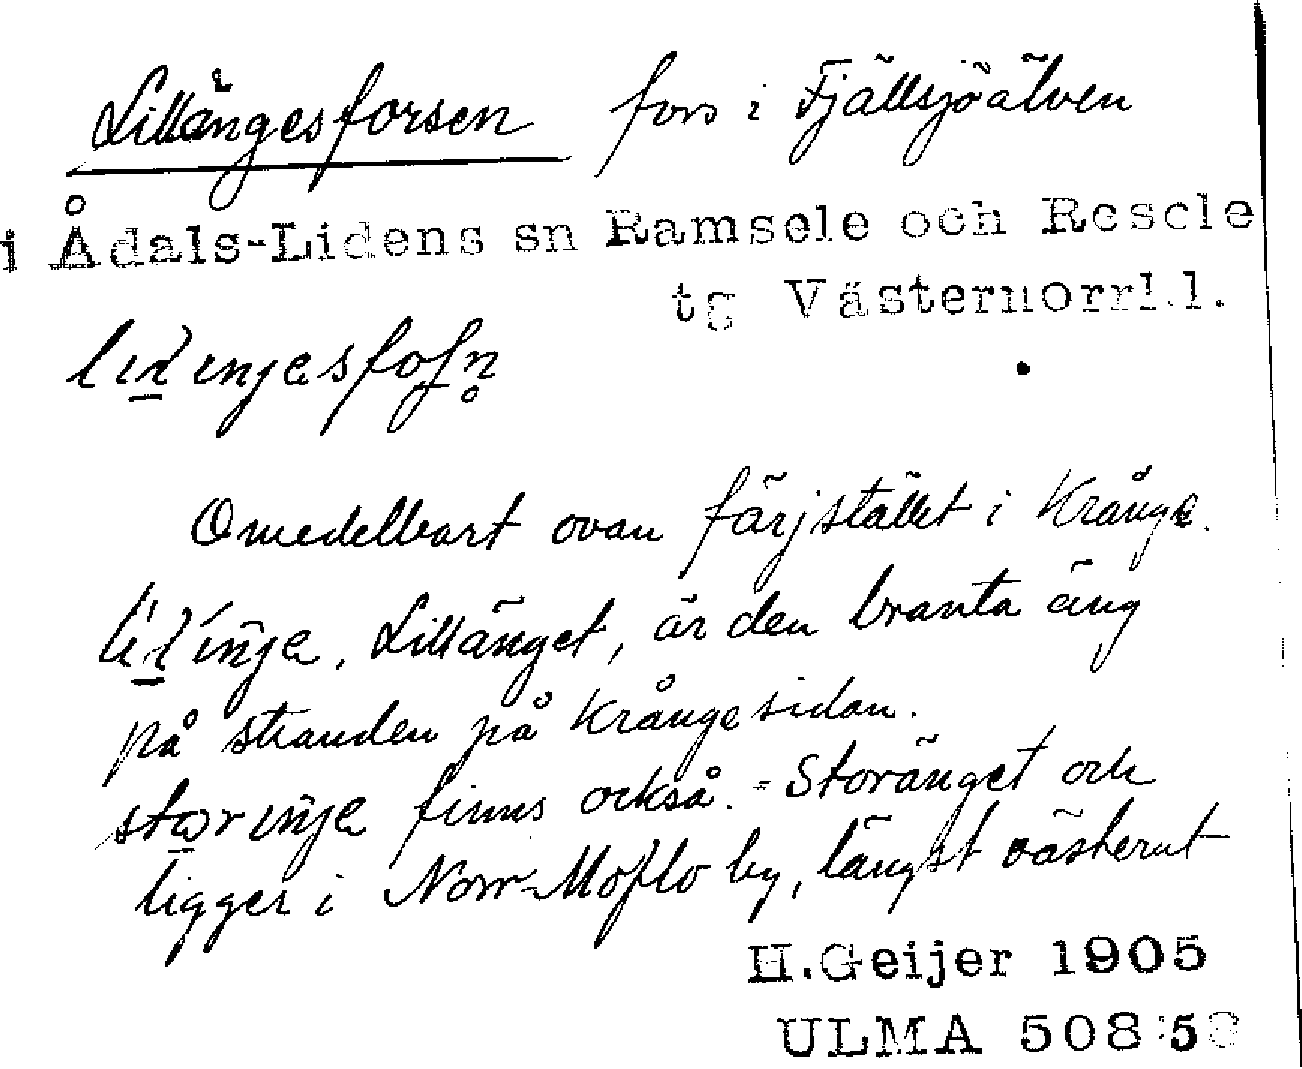 Lillängesforsen fors i Fjällsjöälven
i Ådals-Lidens sn Ramsele och Resele
tg Västernorrl.l.
Omedelbart ovan färjstället i Krånge.
Lillänget, är den branta äng
på stranden på Krångesidan.
finns också. = Storänget och
ligger i Norr-Moflo by, längst västerut
H.Geijer 1905
ULMA 508:5